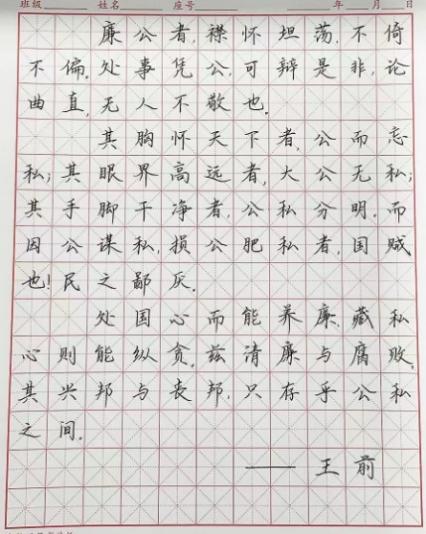 班级 姓名 座号 年 月 日
廉公者,襟怀坦荡,不倚
不偏。处事凭公,可辩是非,论
曲直,无人不敬也。
其胸怀天下者,公而忘
私;其眼界高远者,大公无私;
其手脚干净者,公私分明。而
因公谋私,损公肥私者,国贼
也!民之鄙厌。
处国心而能养廉,藏私
心则能纵贪,兹清廉与腐败,
其兴邦与丧邦,只存乎公私
之间。
——王前